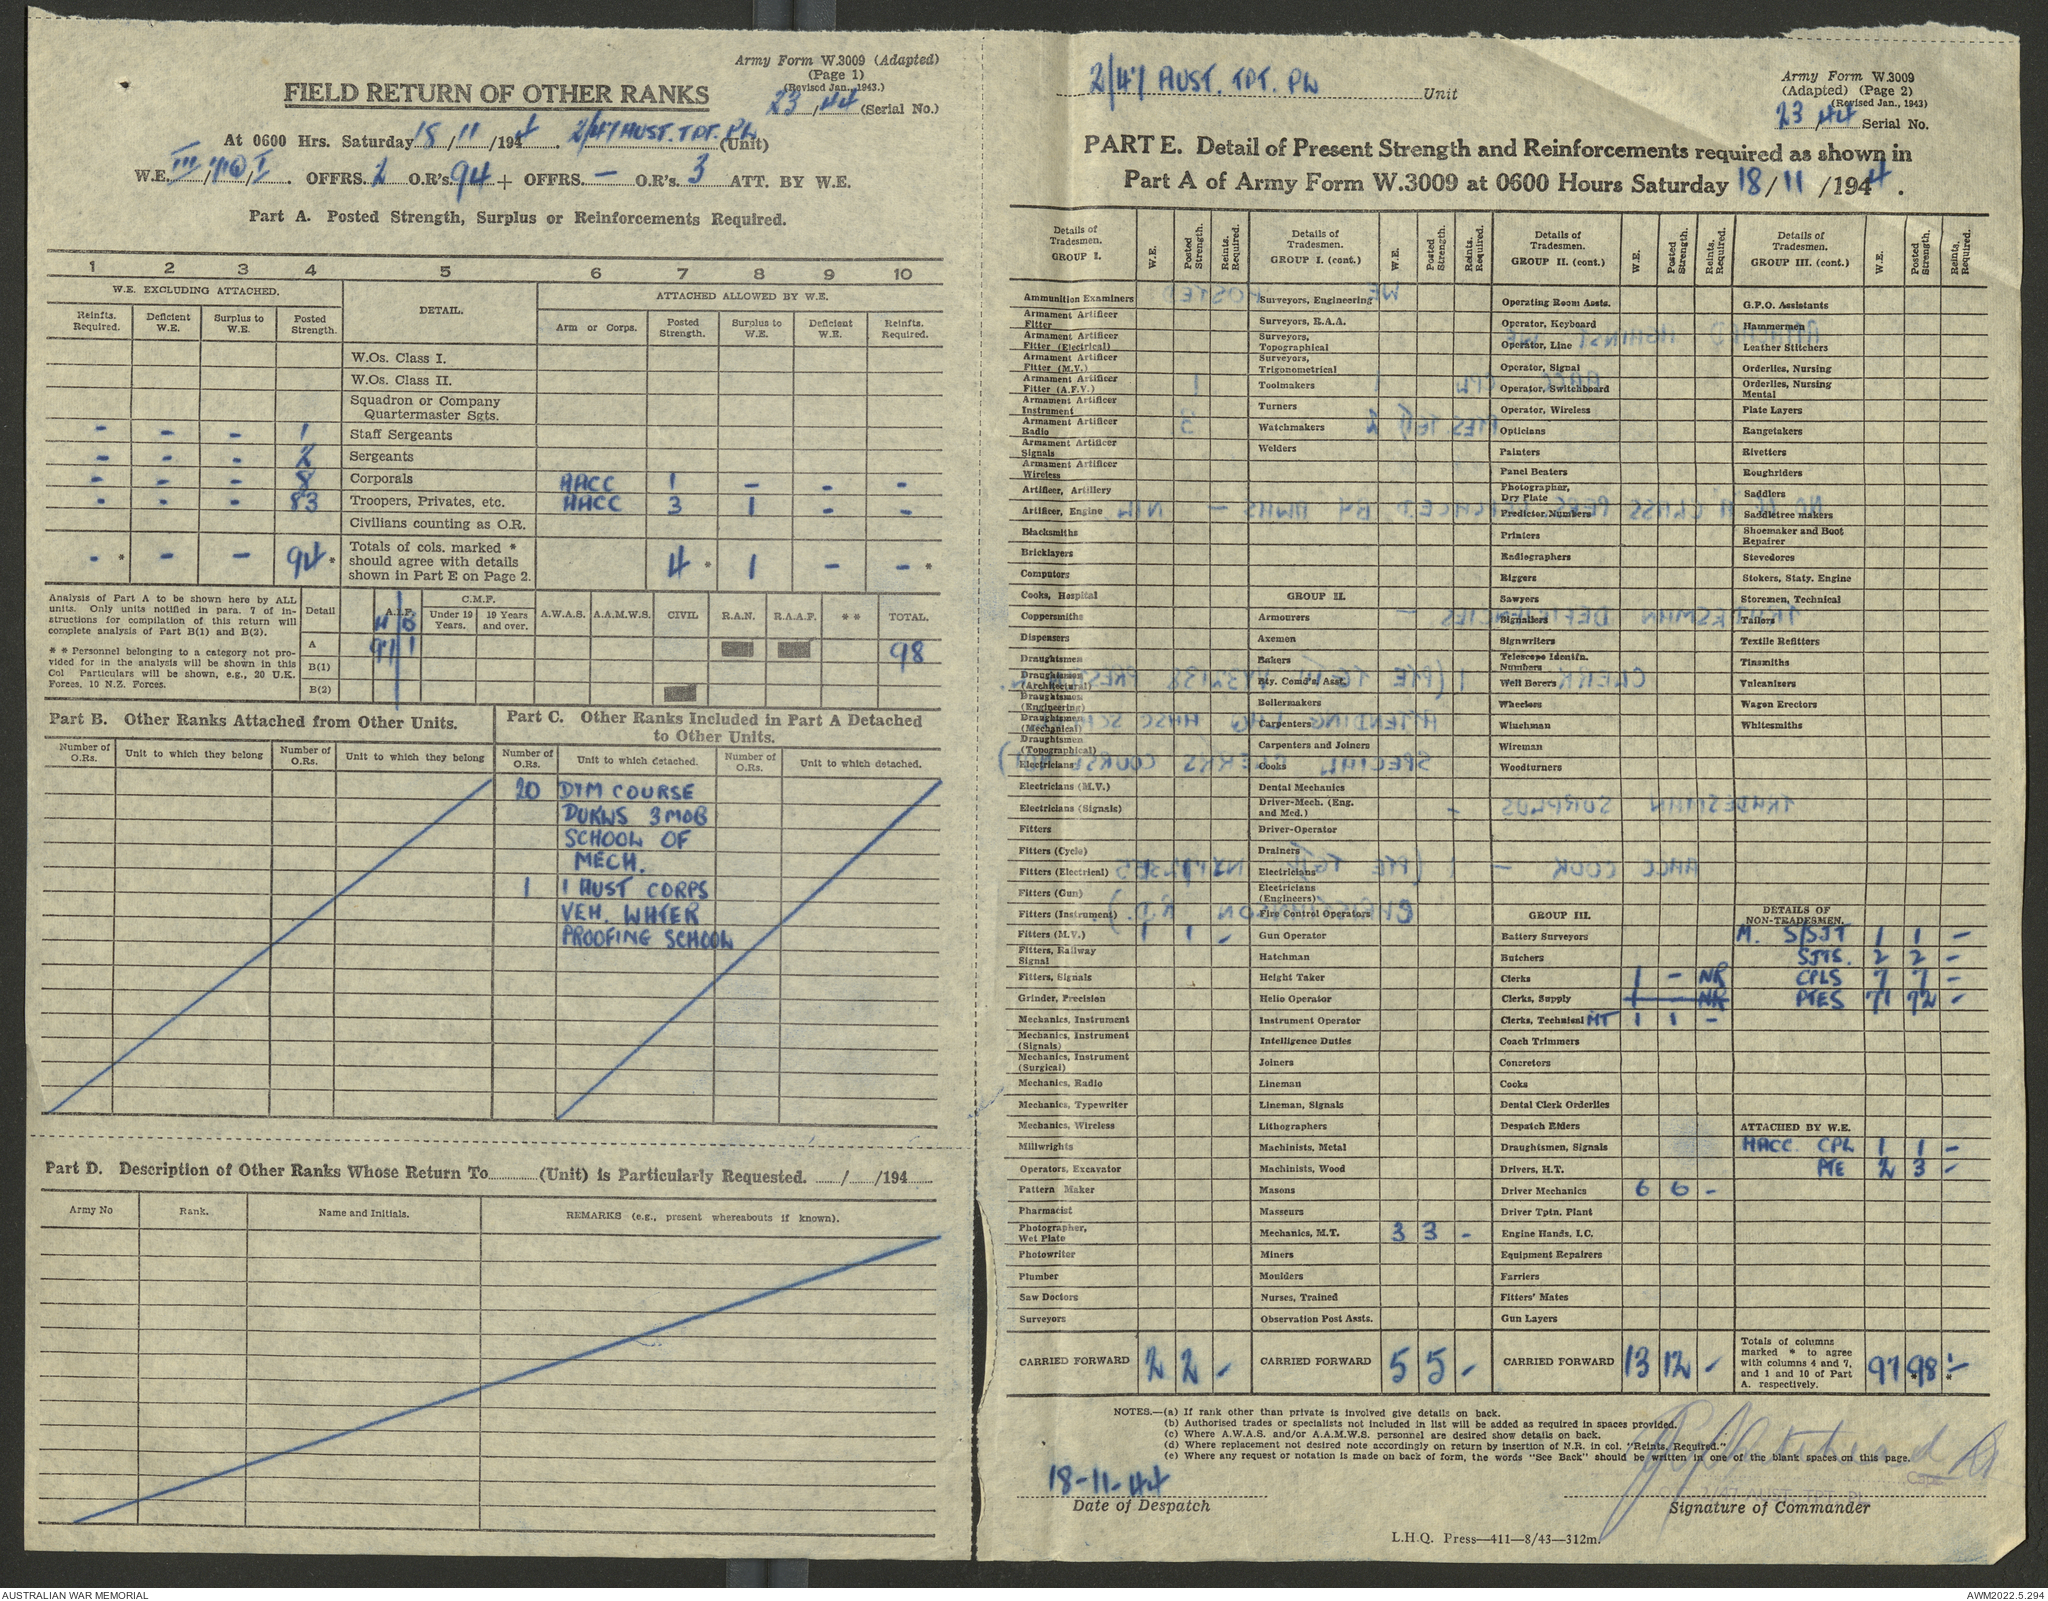 Army Form W.3009 (Adapted)
(Page 1)
(Revised Jan., 1943.)
FIELD RETURN OF OTHER RANKS
23/44 (Serial No.)
At 0600 Hrs. Saturday 18/11/1944. 2/47 AUST. TPT. PL (Unit)
W.E. III/ /I. OFFRS. 2 O.R's. 94 + OFFRS. - O.R's. 3 ATT. BY W.E.
Part A. Posted Strength, Surplus or Reinforcements Required.
1 2 3 4 5 6 7 8 9 10
W.E. EXCLUDING ATTACHED. DETAIL. ATTACHED ALLOWED BY W.E.
Reinfts. Required. Deficient W.E. Surplus to W.E. Posted Strength. Arm or Corps. Posted Strength. Surplus to W.E. Deficient W.E. Reinfts. Required.
W.Os. Class I.
W.Os. Class II.
Squadron or Company
Quartermaster Sgts.
- - - 1 Staff Sergeants
- - - 2 Sergeants
- - - 8 Corporals AACC 1 - - -
- - - 83 Troopers, Privates, etc. AACC 3 1 - -
Civilians counting as O.R.
- * - - 94 * Totals of cols. marked * should agree with details shown in Part E on Page 2. 4 * 1 - - *
Analysis of Part A to be shown here by ALL units. Only units notified in para. 7 of instructions for compilation of this return will complete analysis of Part B(1) and B(2).
* * Personnel belonging to a category not provided for in the analysis will be shown in this Col Particulars will be shown, e.g., 20 U.K. Forces, 10 N.Z. Forces.
Detail A.I.F. A B C.M.F. Under 19 Years. 19 Years and over. A.W.A.S. A.A.M.W.S. CIVIL R.A.N. R.A.A.F. * * TOTAL.
A 97 1 98
B(1)
B(2)
Part B. Other Ranks Attached from Other Units.
Number of O.Rs. Unit to which they belong Number of O.Rs. Unit to which they belong
Part C. Other Ranks Included in Part A Detached to Other Units.
Number of O.Rs. Unit to which detached. Number of O.Rs. Unit to which detached.
20 DVM COURSE
DUKWS 3 MOB
SCHOOL OF
MECH.
1 1 AUST CORPS
VEH. WATER
PROOFING SCHOOL
Part D. Description of Other Ranks Whose Return To (Unit) is Particularly Requested. / /194
Army No Rank. Name and Initials. REMARKS (e.g., present whereabouts if known).
2/47 AUST. TPT. PL Unit
Army Form W.3009
(Adapted) (Page 2)
(Revised Jan., 1943)
23/44 Serial No.
PART E. Detail of Present Strength and Reinforcements required as shown in
Part A of Army Form W.3009 at 0600 Hours Saturday 18/11/1944.
Details of Tradesmen. GROUP I. W.E. Posted Strength. Reints. Required.
Ammunition Examiners
Armament Artificer Fitter
Armament Artificer Fitter (Electrical)
Armament Artificer Fitter (M.V.)
Armament Artificer Fitter (A.F.V.)
Armament Artificer Instrument
Armament Artificer Radio
Armament Artificer Signals
Armament Artificer Wireless
Artificer, Artillery
Artificer, Engine
Blacksmiths
Bricklayers
Computors
Cooks, Hospital
Coppersmiths
Dispensers
Draughtsmen
Draughtsmen (Architectural)
Draughtsmen (Engineering)
Draughtsmen (Mechanical)
Draughtsmen (Topographical)
Electricians
Electricians (M.V.)
Electricians (Signals)
Fitters
Fitters (Cycle)
Fitters (Electrical) 1 1
Fitters (Gun)
Fitters (Instrument)
Fitters (M.V.) 1 1 -
Fitters, Railway Signal
Fitters, Signals
Grinder, Precision
Mechanics, Instrument
Mechanics, Instrument (Signals)
Mechanics, Instrument (Surgical)
Mechanics, Radio
Mechanics, Typewriter
Mechanics, Wireless
Millwrights
Operators, Excavator
Pattern Maker
Pharmacist
Photographer, Wet Plate
Photowriter
Plumber
Saw Doctors
Surveyors
CARRIED FORWARD 2 2 -
Details of Tradesmen. GROUP I. (cont.) W.E. Posted Strength. Reints. Required.
Surveyors, Engineering
Surveyors, R.A.A.
Surveyors, Topographical
Surveyors, Trigonometrical
Toolmakers
Turners
Watchmakers
Welders
GROUP II.
Armourers
Axemen
Bakers
Bty. Comd's, Asst.
Boilermakers
Carpenters
Carpenters and Joiners
Cooks
Dental Mechanics
Driver-Mech. (Eng. and Med.)
Driver-Operator
Drainers
Electricians
Electricians (Engineers)
Fire Control Operators
Gun Operator
Hatchman
Height Taker
Helio Operator
Instrument Operator
Intelligence Duties
Joiners
Lineman
Lineman, Signals
Lithographers
Machinists, Metal
Machinists, Wood
Masons
Masseurs
Mechanics, M.T. 3 3 -
Miners
Moulders
Nurses, Trained
Observation Post Assts.
CARRIED FORWARD 5 5 -
Details of Tradesmen. GROUP II. (cont.) W.E. Posted Strength. Reints. Required.
Operating Room Assts.
Operator, Keyboard
Operator, Line
Operator, Signal
Operator, Switchboard
Operator, Wireless
Opticians
Painters
Panel Beaters
Photographer, Dry Plate
Predictor Numbers
Printers
Radiographers
Riggers
Sawyers
Signallers
Signwriters
Telescope Identfn. Numbers
Well Borers
Wheelers
Winchman
Wireman
Woodturners
GROUP III.
Battery Surveyors
Butchers
Clerks 1 - NR
Clerks, Supply 1 - NR
Clerks, Technical MT 1 1 -
Coach Trimmers
Concretors
Cooks
Dental Clerk Orderlies
Despatch Riders
Draughtsmen, Signals
Drivers, H.T.
Driver Mechanics 6 6 -
Driver Tptn. Plant
Engine Hands, I.C.
Equipment Repairers
Farriers
Fitters' Mates
Gun Layers
CARRIED FORWARD 13 12 -
Details of Tradesmen. GROUP III. (cont.) W.E. Posted Strength. Reints. Required.
G.P.O. Assistants
Hammermen
Leather Stitchers
Orderlies, Nursing
Orderlies, Nursing Mental
Plate Layers
Rangetakers
Rivetters
Roughriders
Saddlers
Saddletree makers
Shoemaker and Boot Repairer
Stevedores
Stokers, Staty. Engine
Storemen, Technical
Tailors
Textile Refitters
Tinsmiths
Vulcanizers
Wagon Erectors
Whitesmiths
DETAILS OF NON-TRADESMEN.
M. S/SJT 1 1 -
SJTS. 2 2 -
CPLS 7 7 -
PTES 71 72 -
ATTACHED BY W.E.
AACC CPL 1 1 -
PTE 2 3 -
Totals of columns marked * to agree with columns 4 and 7, and 1 and 10 of Part A. respectively. 97 98 * - *
NOTES.—(a) If rank other than private is involved give details on back.
(b) Authorised trades or specialists not included in list will be added as required in spaces provided.
(c) Where A.W.A.S. and/or A.A.M.W.S. personnel are desired show details on back.
(d) Where replacement not desired note accordingly on return by insertion of N.R. in col. "Reints. Required."
(e) Where any request or notation is made on back of form, the words "See Back" should be written in one of the blank spaces on this page.
18-11-44
Date of Despatch
Signature of Commander
L.H.Q. Press—411—8/43—312m.
AUSTRALIAN WAR MEMORIAL
AWM2022.5.294